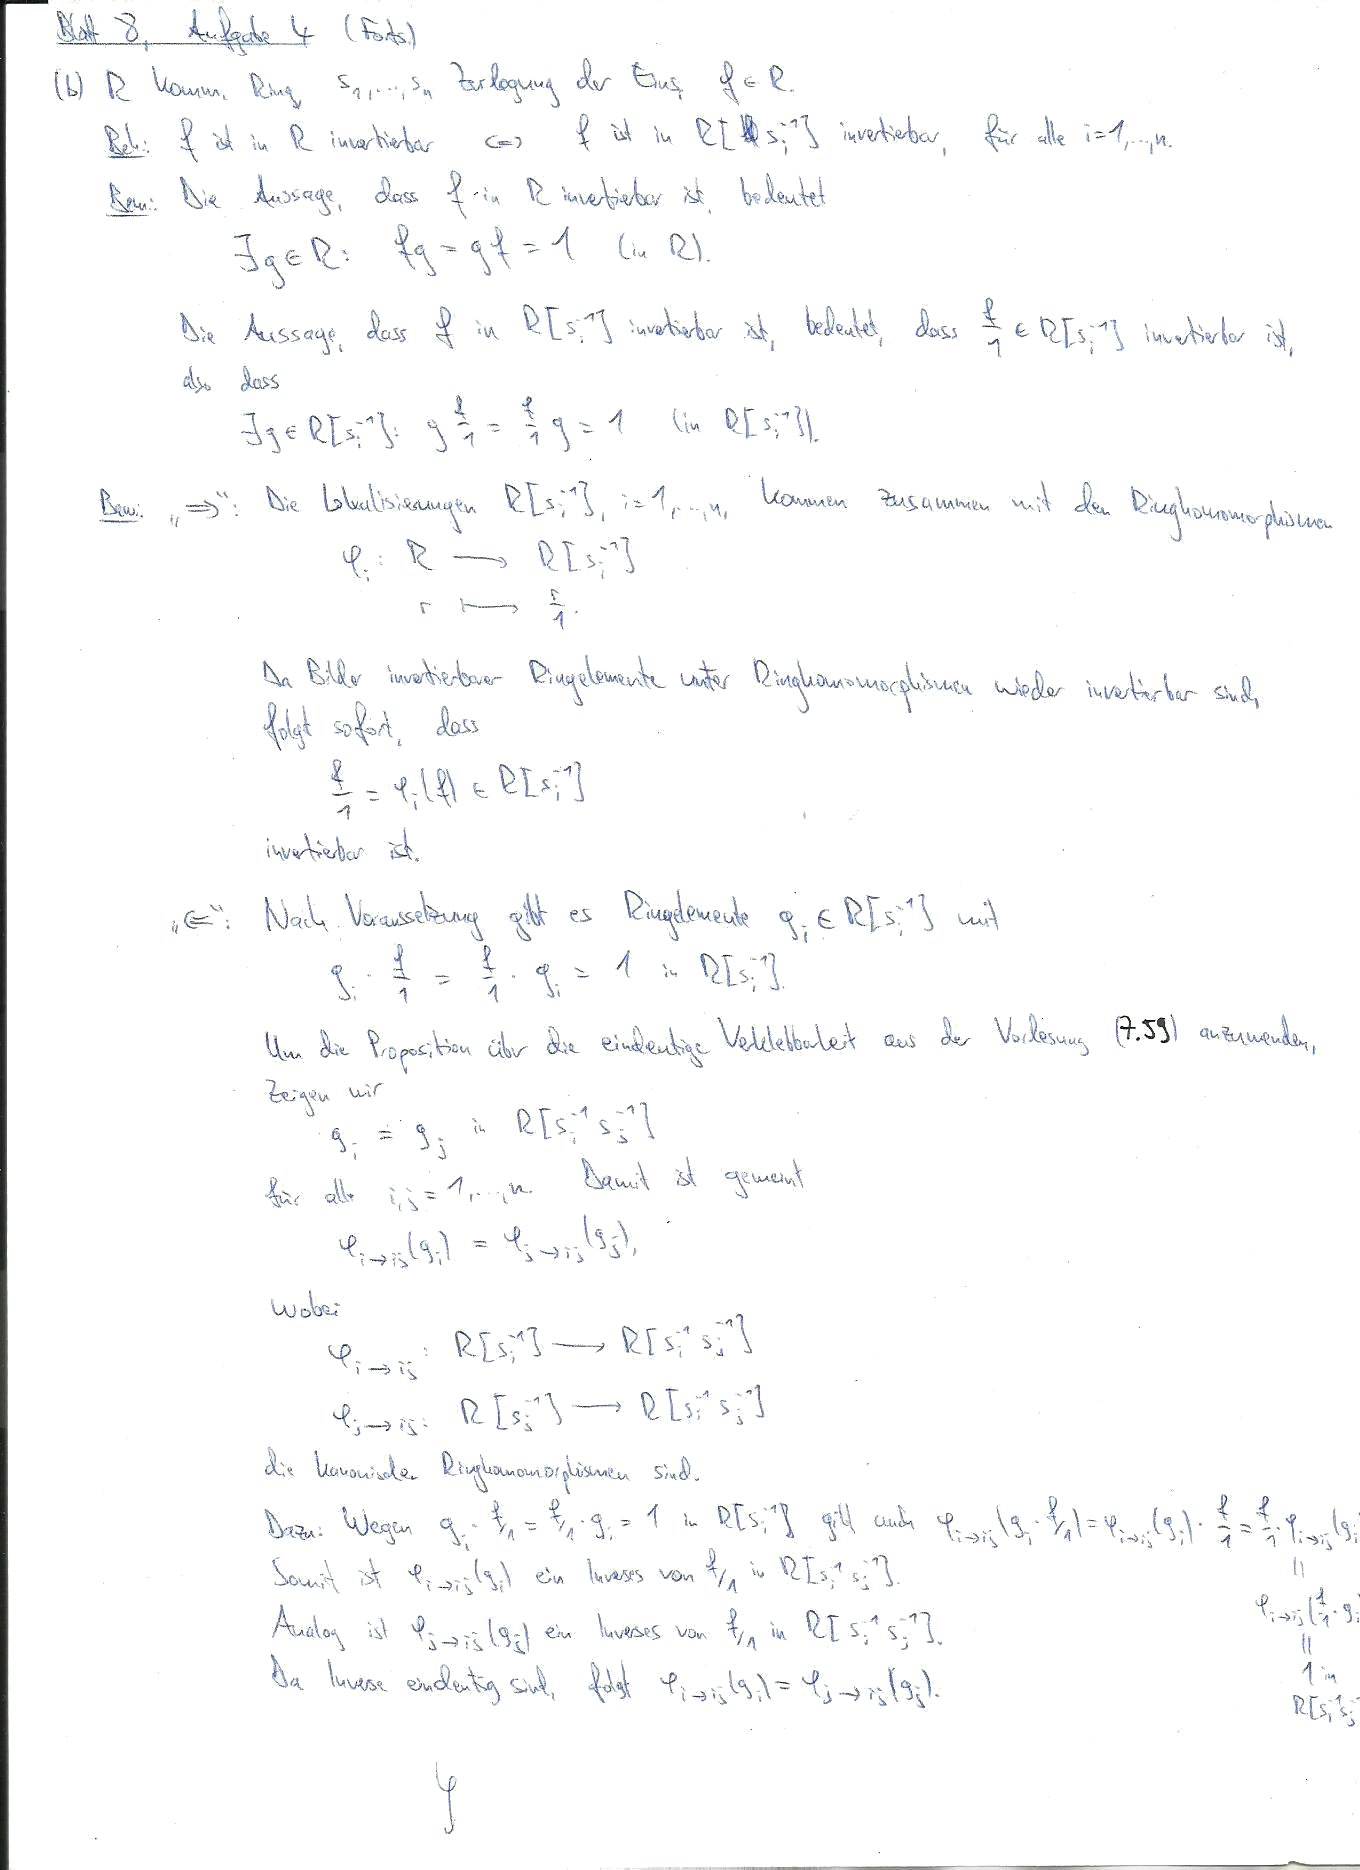 Blatt 8, Aufgabe 4 (Forts.)
(b) R komm. Ring, s₁,...,sₙ Zerlegung der Eins, f ∈ R.
Beh.: f ist in R invertierbar ⇔ f ist in R[sᵢ⁻¹] invertierbar, für alle i=1,...,n.
Bem.: Die Aussage, dass f in R invertierbar ist, bedeutet
∃g∈R: fg = gf = 1 (in R).
Die Aussage, dass f in R[sᵢ⁻¹] invertierbar ist, bedeutet, dass f/1 ∈ R[sᵢ⁻¹] invertierbar ist,
also dass
∃g∈R[sᵢ⁻¹]: g f/1 = f/1 g = 1 (in R[sᵢ⁻¹]).
Bew.: „⇒“: Die Lokalisierungen R[sᵢ⁻¹], i=1,...,n, kommen zusammen mit den Ringhomomorphismen
φᵢ: R ⟶ R[sᵢ⁻¹]
r ⟼ r/1.
Da Bilder invertierbarer Ringelemente unter Ringhomomorphismen wieder invertierbar sind,
folgt sofort, dass
f/1 = φᵢ(f) ∈ R[sᵢ⁻¹]
invertierbar ist.
„⇐“: Nach Voraussetzung gibt es Ringelemente gᵢ ∈ R[sᵢ⁻¹] mit
gᵢ · f/1 = f/1 · gᵢ = 1 in R[sᵢ⁻¹].
Um die Proposition über die eindeutige Verklebbarkeit aus der Vorlesung (7.59) anzuwenden,
zeigen wir
gᵢ = gⱼ in R[sᵢ⁻¹ sⱼ⁻¹]
für alle i,j = 1,...,n. Damit ist gemeint
φᵢ→ᵢⱼ(gᵢ) = φⱼ→ᵢⱼ(gⱼ),
wobei
φᵢ→ᵢⱼ: R[sᵢ⁻¹] ⟶ R[sᵢ⁻¹ sⱼ⁻¹]
φⱼ→ᵢⱼ: R[sⱼ⁻¹] ⟶ R[sᵢ⁻¹ sⱼ⁻¹]
die kanonischen Ringhomomorphismen sind.
Dazu: Wegen gᵢ · f/1 = f/1 · gᵢ = 1 in R[sᵢ⁻¹] gilt auch φᵢ→ᵢⱼ(gᵢ · f/1) = φᵢ→ᵢⱼ(gᵢ) · f/1 = f/1 · φᵢ→ᵢⱼ(gᵢ
||
Somit ist φᵢ→ᵢⱼ(gᵢ) ein Inverses von f/1 in R[sᵢ⁻¹ sⱼ⁻¹].
φᵢ→ᵢⱼ(f/1 · gᵢ
Analog ist φⱼ→ᵢⱼ(gⱼ) ein Inverses von f/1 in R[sᵢ⁻¹ sⱼ⁻¹].
||
1 in
Da Inverse eindeutig sind, folgt φᵢ→ᵢⱼ(gᵢ) = φⱼ→ᵢⱼ(gⱼ).
R[sᵢ⁻¹sⱼ